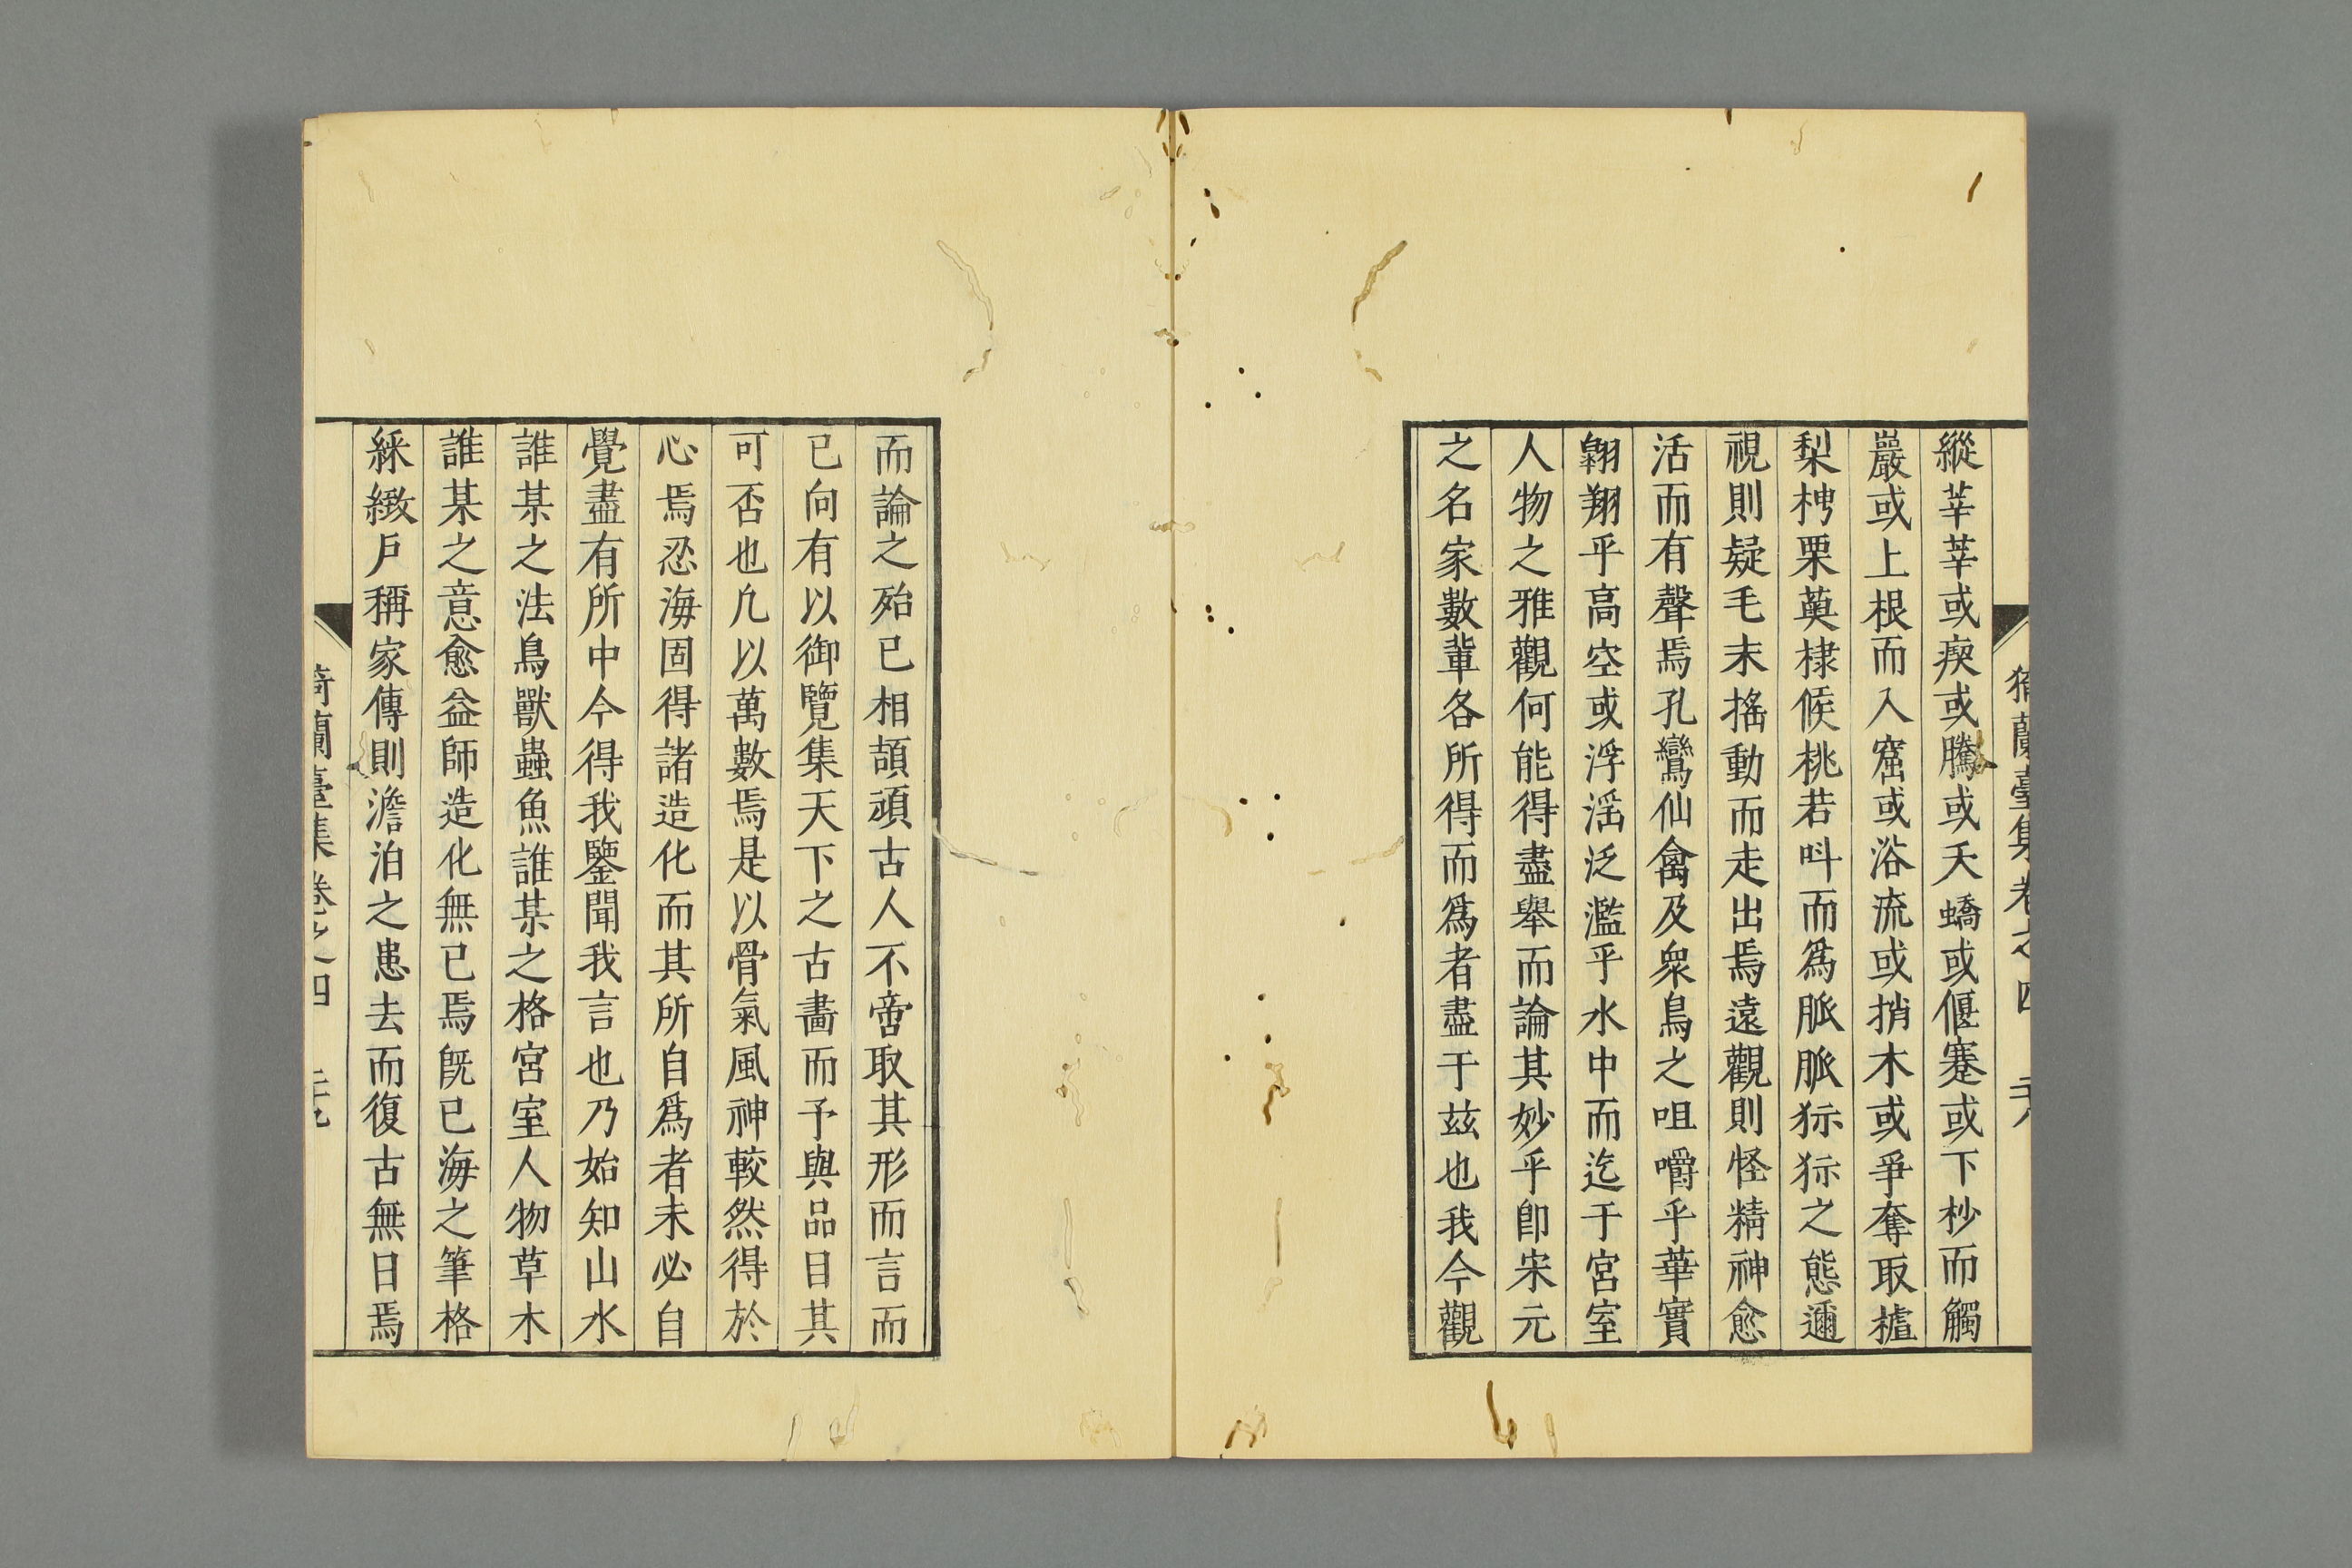 縱莘莘或瘈或騰或夭蟜或偃蹇或下杪而觸
巖或上根而入窟或浴流或捎木或爭奪取樝
梨梬栗薁棣候桃若呌而爲脈脈狋狋之態邇
視則疑毛末搖動而走出焉遠觀則怪精神愈
活而有聲焉孔鸞仙禽及衆鳥之咀嚼乎華實
翶翔乎高空或浮滛泛濫乎水中而迄于宮室
人物之雅觀何能得盡舉而論其妙乎卽宋元
之名家數輩各所得而爲者盡于玆也我今觀
猗蘭臺集卷之四 六
而論之殆已相頡頏古人不啻取其形而言而
已向有以御覽集天下之古畵而予與品目其
可否也凢以萬數焉是以骨氣風神較然得於
心焉忍海固得諸造化而其所自爲者未必自
覺盡有所中今得我鑒聞我言也乃始知山水
誰某之法鳥獸蟲魚誰某之格宮室人物草木
誰某之意愈益師造化無已焉旣已海之筆格
綵緻戶稱家傳則澹泊之患去而復古無日焉
猗蘭臺集卷之四